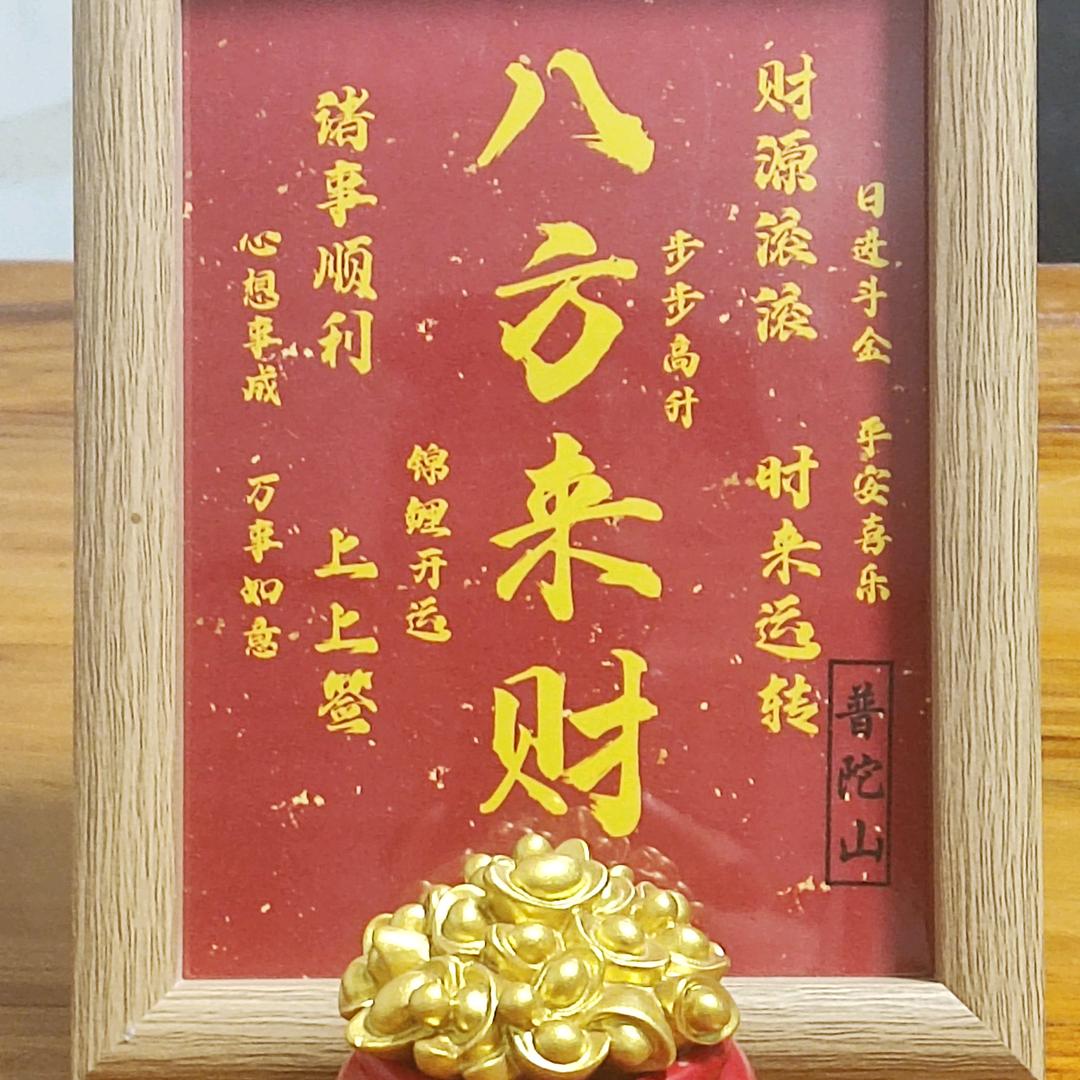 日进斗金 平安喜乐
财源滚滚 时来运转
步步高升
八方来财
锦鲤开运
诸事顺利 上上签
心想事成 万事如意
普陀山